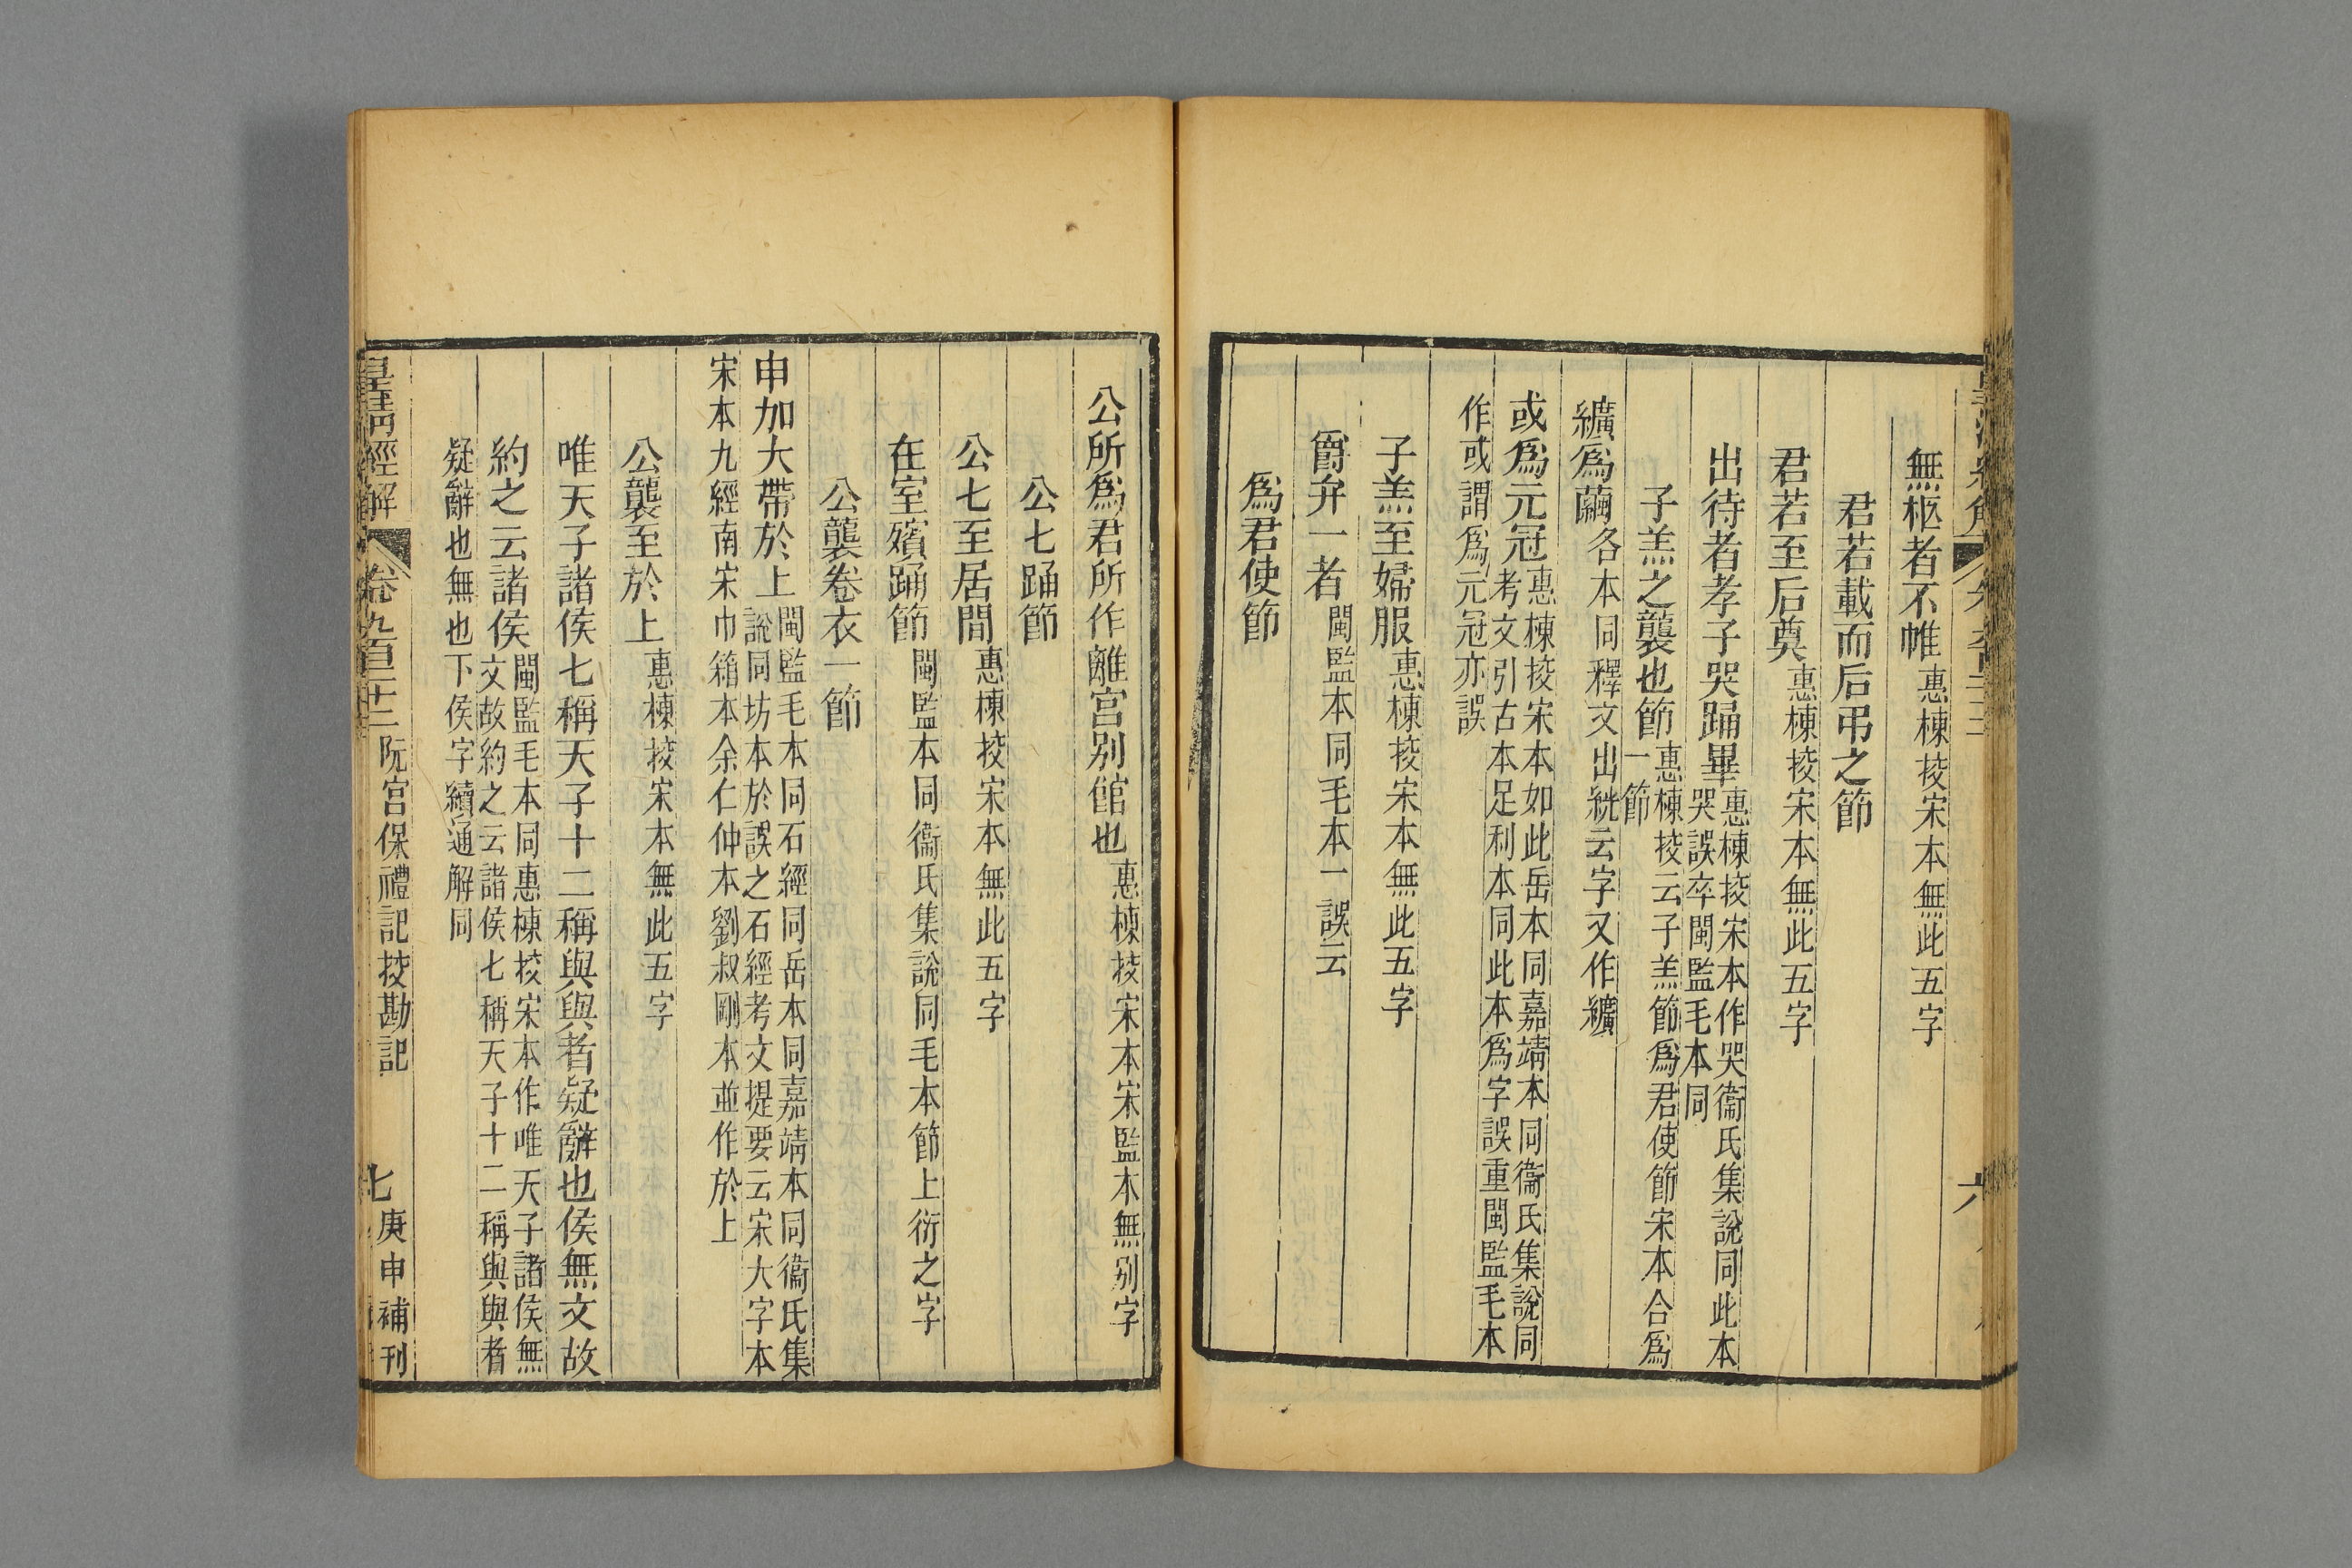 無柩者不帷惠棟挍宋本無此五字
君若載而后弔之節
君若至后奠惠棟挍宋本無此五字
出待者孝子哭踊畢惠棟挍宋本作哭衞氏集說同此本
哭誤卒閩監毛本同
子羔之襲也節惠棟挍云子羔節爲君使節宋本合爲
一節
纊爲繭各本同釋文出絖云字又作纊
或爲元冠惠棟挍宋本如此岳本同嘉靖本同衞氏集說同
考文引古本足利本同此本爲字誤重閩監毛本
作或謂爲元冠亦誤
子羔至婦服惠棟挍宋本無此五字
爵弁一者閩監本同毛本一誤云
爲君使節
公所爲君所作離宮別館也惠棟挍宋本宋監本無別字
公七踊節
公七至居間惠棟挍宋本無此五字
在室殯踊節閩監本同衞氏集說同毛本節上衍之字
公襲卷衣一節
申加大帶於上閩監毛本同石經同岳本同嘉靖本同衞氏集
說同坊本於誤之石經考文提要云宋大字本
宋本九經南宋巾箱本余仁仲本劉叔剛本並作於上
公襲至於上惠棟挍宋本無此五字
唯天子諸侯七稱天子十二稱與與者疑辭也侯無文故
約之云諸侯閩監毛本同惠棟挍宋本作唯天子諸侯無
文故約之云諸侯七稱天子十二稱與與者
疑辭也無也下侯字續通解同
皇清經解 卷九百二十二 阮宮保禮記挍勘記 七 庚申補刊